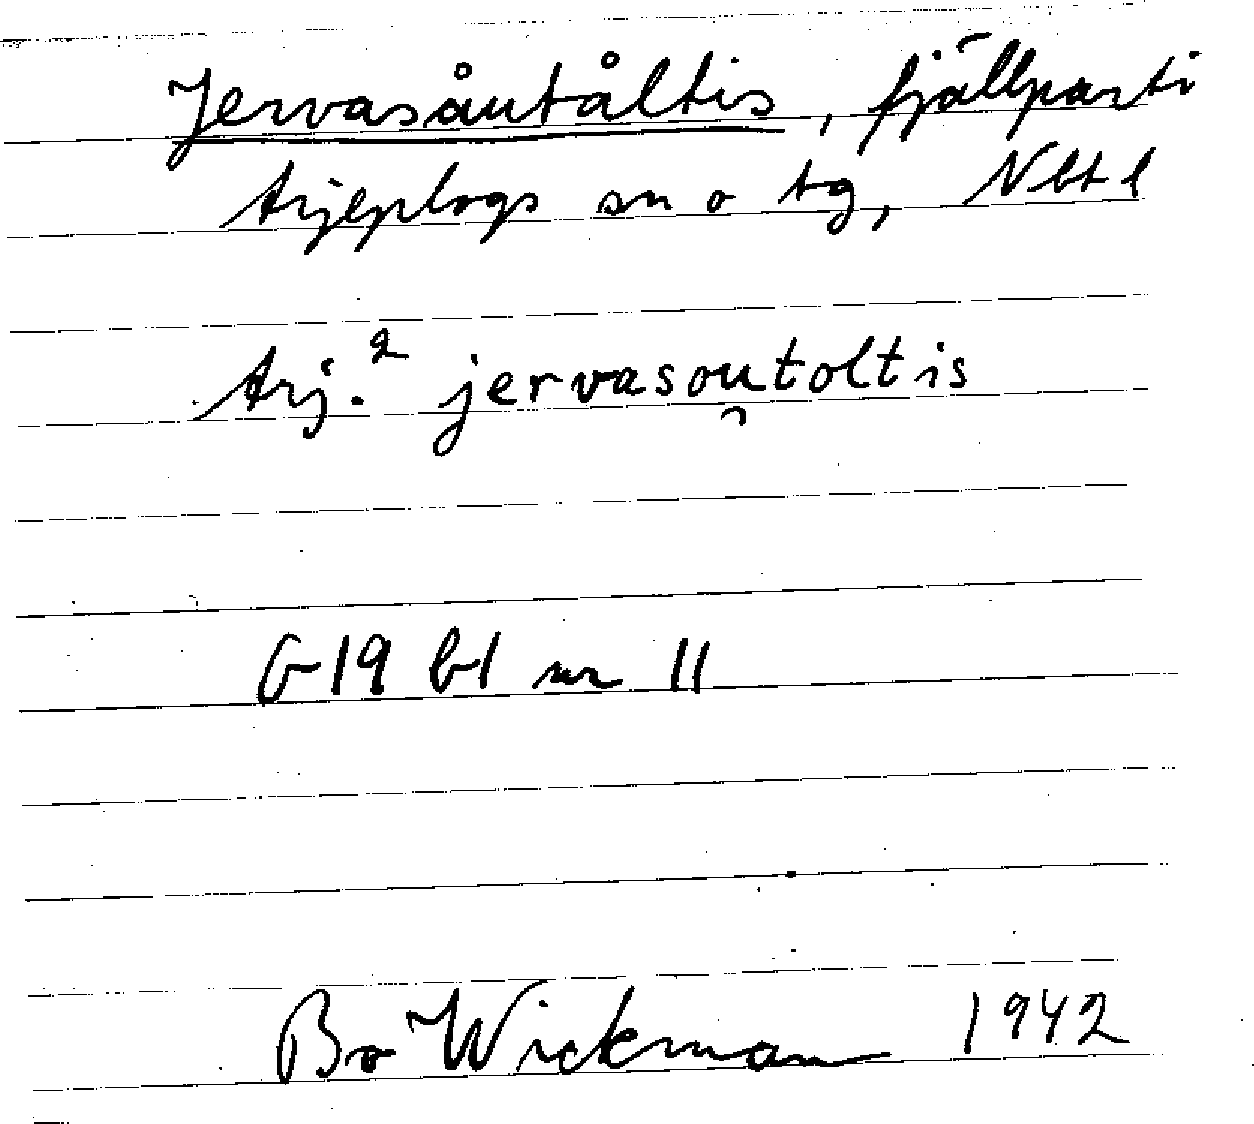 Jervasåutåltis, fjällparti
Arjeplogs sn o tg, Nbt l
Arj.² jervasou̯toltis
G 19 bl nr 11
Bo Wickman 1942